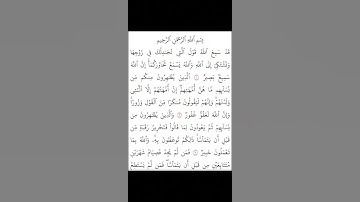 بِسْمِ ٱللَّهِ ٱلرَّحْمَٰنِ ٱلرَّحِيمِ
قَدْ سَمِعَ ٱللَّهُ قَوْلَ ٱلَّتِي تُجَٰدِلُكَ فِي زَوْجِهَا
وَتَشْتَكِيٓ إِلَى ٱللَّهِ وَٱللَّهُ يَسْمَعُ تَحَاوُرَكُمَآ إِنَّ ٱللَّهَ
سَمِيعٌۢ بَصِيرٌ ١ ٱلَّذِينَ يُظَٰهِرُونَ مِنكُم مِّن
نِّسَآئِهِم مَّا هُنَّ أُمَّهَٰتِهِمْ إِنْ أُمَّهَٰتُهُمْ إِلَّا ٱلَّٰٓـِٔي
وَلَدْنَهُمْ وَإِنَّهُمْ لَيَقُولُونَ مُنكَرًا مِّنَ ٱلْقَوْلِ وَزُورًا
وَإِنَّ ٱللَّهَ لَعَفُوٌّ غَفُورٌ ٢ وَٱلَّذِينَ يُظَٰهِرُونَ مِن
نِّسَآئِهِمْ ثُمَّ يَعُودُونَ لِمَا قَالُوا۟ فَتَحْرِيرُ رَقَبَةٍ مِّن
قَبْلِ أَن يَتَمَآسَّا ذَٰلِكُمْ تُوعَظُونَ بِهِۦ وَٱللَّهُ بِمَا
تَعْمَلُونَ خَبِيرٌ ٣ فَمَن لَّمْ يَجِدْ فَصِيَامُ شَهْرَيْنِ
مُتَتَابِعَيْنِ مِن قَبْلِ أَن يَتَمَآسَّا فَمَن لَّمْ يَسْتَطِعْ